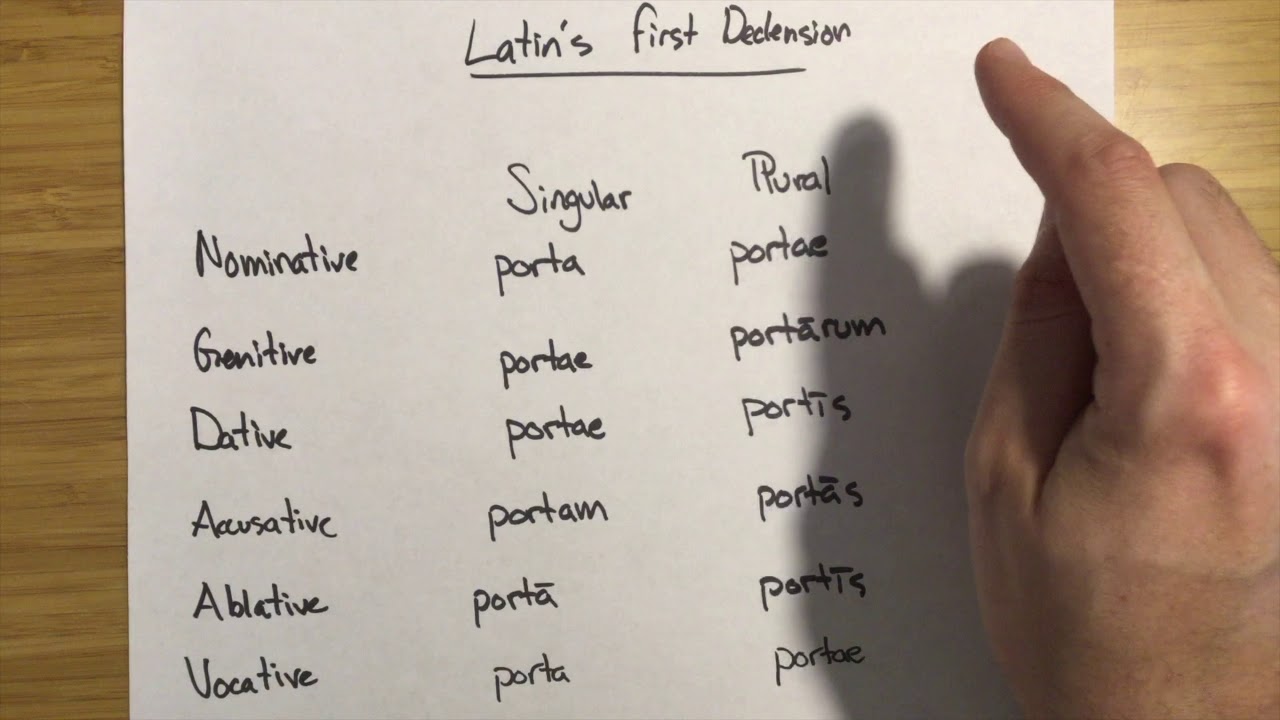 Latin's First Declension
Singular Plural
Nominative porta portae
Genitive portae portārum
Dative portae portīs
Accusative portam portās
Ablative portā portīs
Vocative porta portae